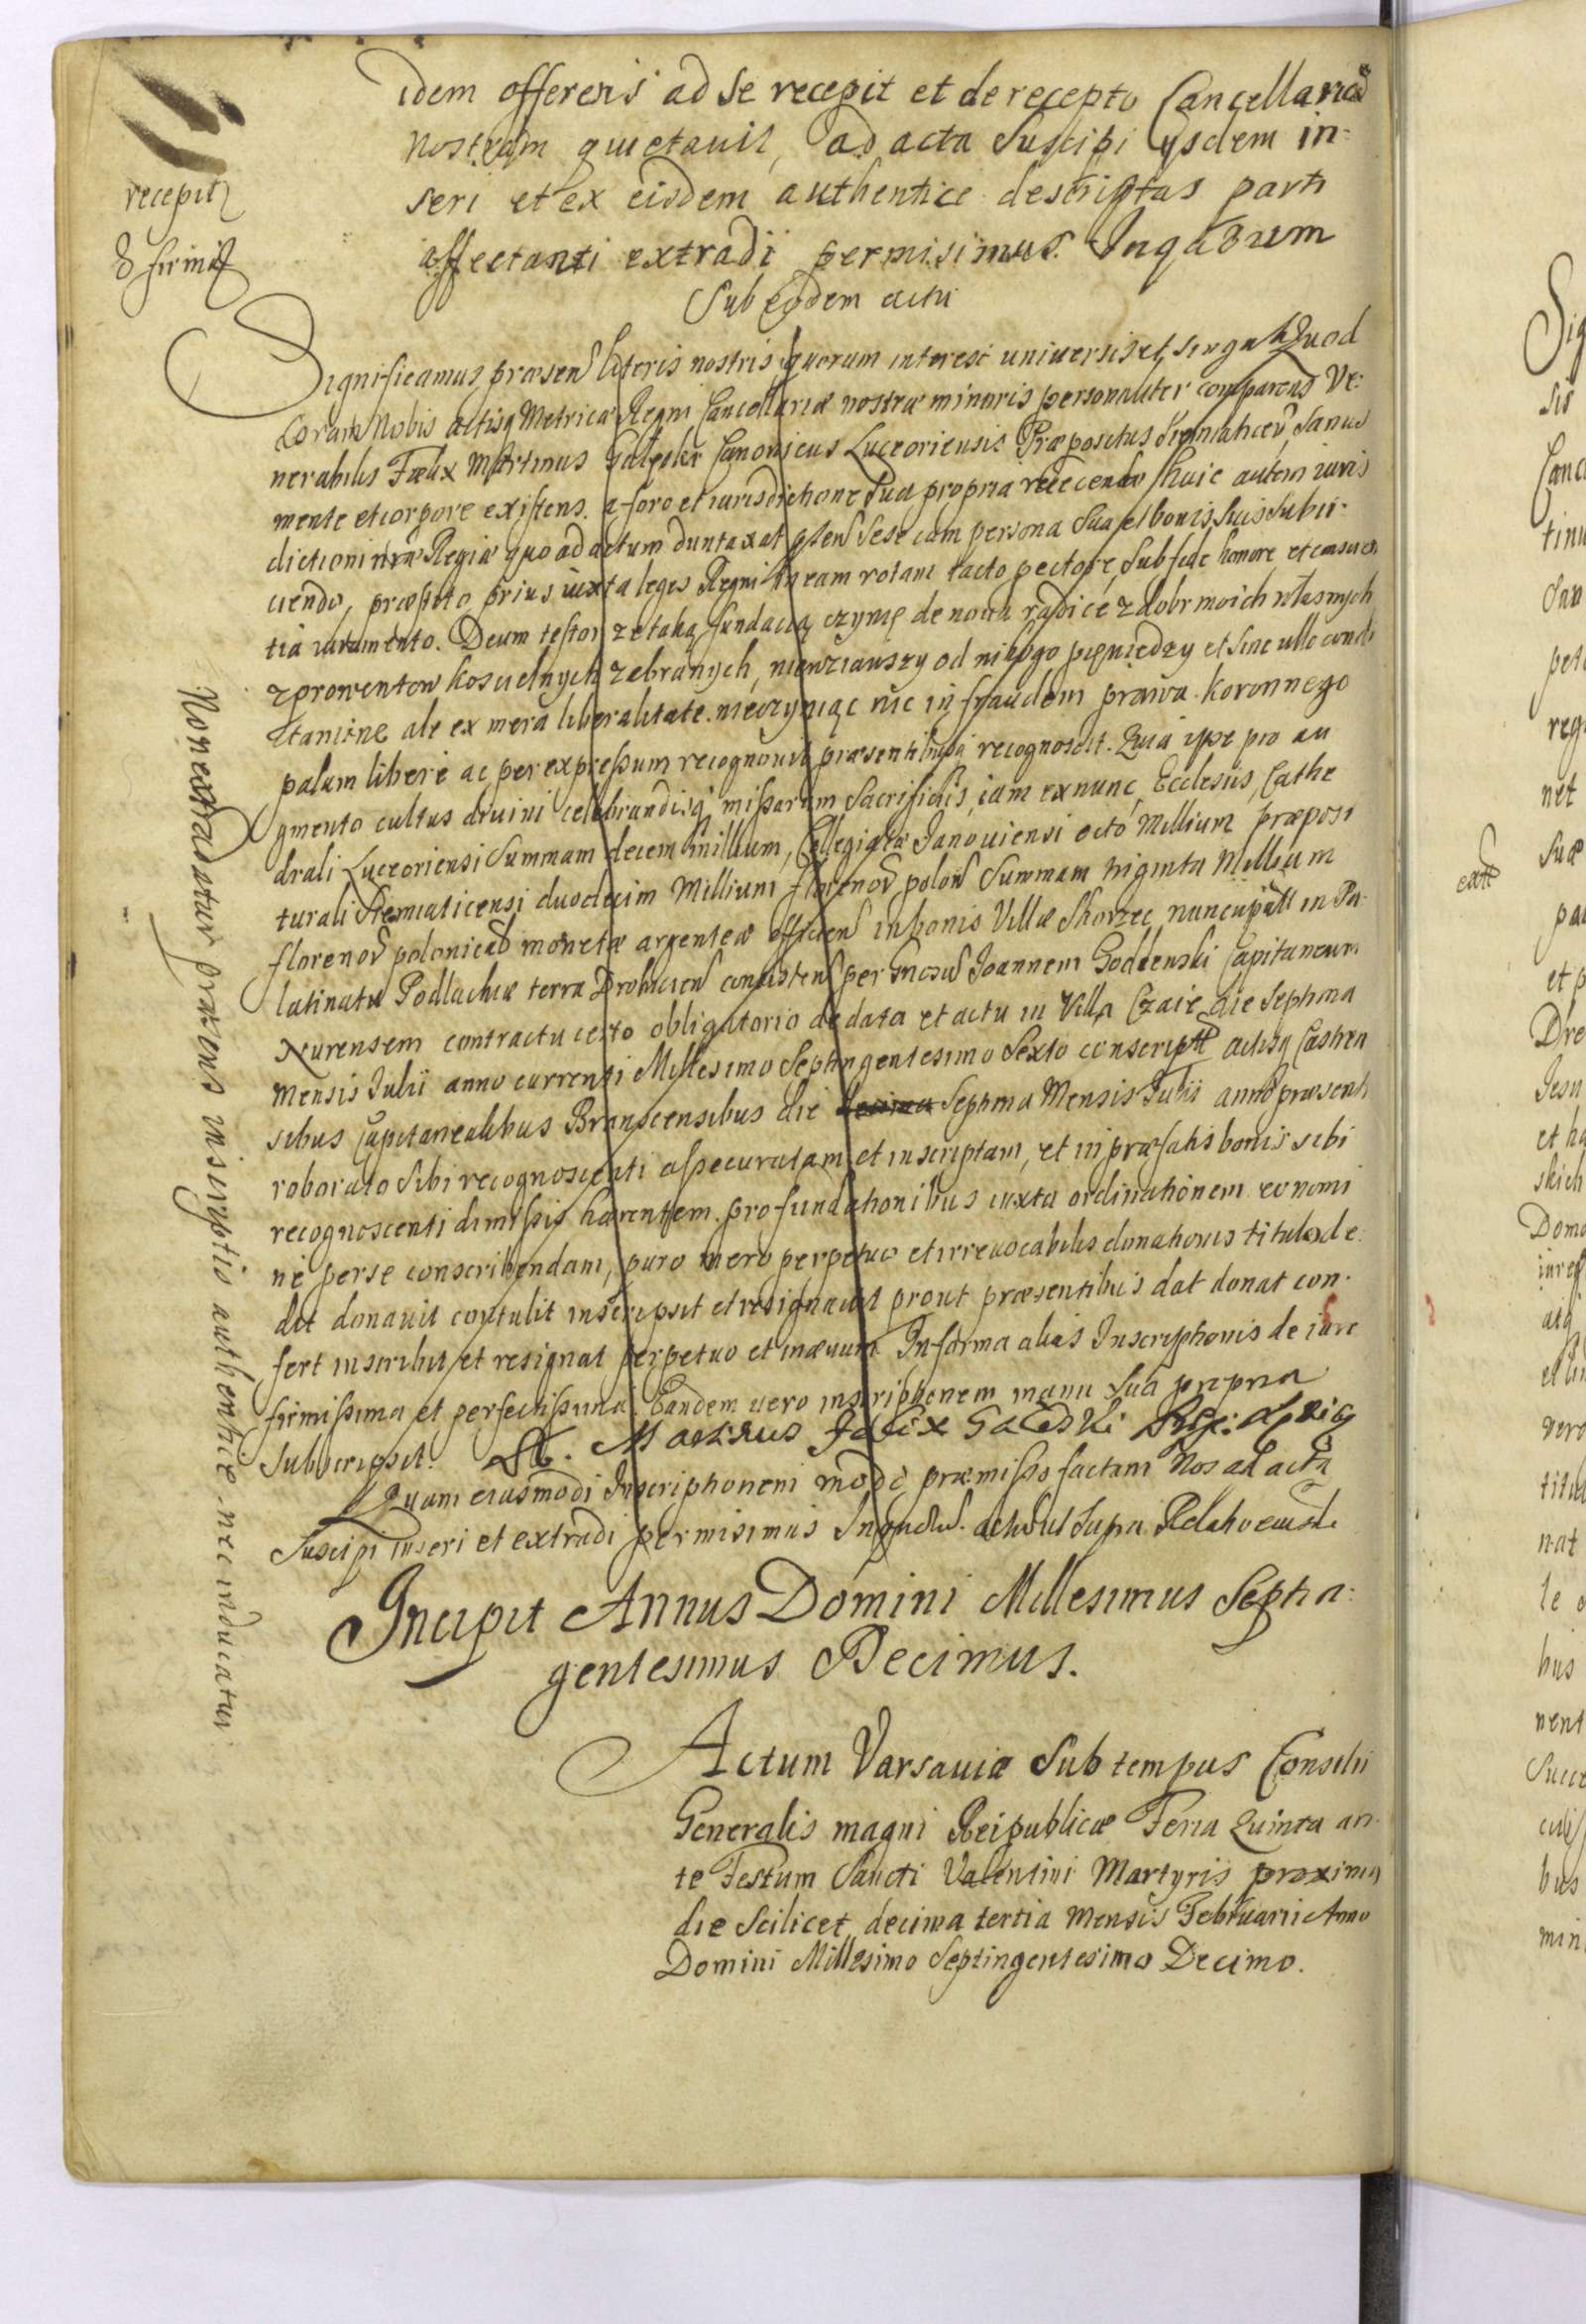 idem offerens ad se recepit et de recepto Cancellariã
nostram quietavit, ad acta suscipi ysdem in-
seri et ex eisdem authentice descriptas parti
affectanti extradi permisimus. In quarum
recepit
Sub eodem actu
Significamus præsen literis nostris quorum interest universis et singulis Quod
Coram Nobis actisq Metricæ Regni Cancellariæ nostræ minoris personaliter comparens Ve-
nerabilis Fælix Martinus Canonicus Luceoriensis Præpositus Siemiaticen Sanus
mente et corpore existens. a foro et iurisdictione sua propria recedendo huic autem iuris
dictioni nræ Regiæ quo ad actum duntaxat psen sese cum persona sua et bonis suis subii-
ciendo, præstito prius iuxta leges Regni in eam rotam tacto pectore, sub fide honore et conscien
tia iuramento. Deum testor ze taką fundacią czynię de nova radice z dobr moich własnych
z prowentow koscielnych zebranych, niewziąwszy od nikogo pięniędzy et sine ullo condi
ctamine ale ex mera liberalitate. nieczyniąc nic in fraudem prawa koronnego
palam libere ac per expressum recognovit præsentibusq recognoscit. Quia ipse pro au
gmento cultus divini celebrandisq missarum sacrificiis, iam ex nunc, Ecclesiis, Cathe
drali Luceoriensi Summam decem millium, Collegiatæ Janoviensi octo Millium præposi
turali Siemiaticensi duodecim Millium florenor polon Summam triginta Millium
florenor polonical monetæ argenteæ efficien in bonis Villæ Skorzec nuncupatt in Pa-
latinatu Podlachiæ terra Drohicien consisten per Gnosum Joannem Godlewski Capitaneum
Nurensem contractu certo obligatorio de data et actu in Villa Czaie die Septima
Mensis Julii anno currenti Millesimo Septingentesimo Sexto conscript actisq Castren
sibus Capitanealibus Branscensibus die Septima Mensis Julii anno præsenti
roborato sibi recognoscenti assecuratam et inscriptam, et in præfatis bonis sibi
recognoscenti dimissis hærentem. pro fundationibus iuxta ordinationem eo nomi
ne per se conscribendam, puro mero perpetuo et irrevocabilis donationis titulo de-
dit donavit contulit inscripsit et resignavit prout præsentibus dat donat con-
fert inscribit et resignat perpetuo et in ævum. In forma alias Inscriptionis de iure
firmissima et perfectissima. Eandem vero inscriptionem manu sua propria
subscripsit. Martinus Felix
Quam eiusmodi Inscriptionem modo præmisso factam Nos ad acta
suscipi inseri et extradi permisimus In quor. act ut supra Relatio eiusde
Non extradatur præsens inscriptio authentice nec inducatur
Incipit Annus Domini Millesimus Septin-
gentesimus Decimus.
Actum Varsaviæ Sub tempus Consilii
Generalis magni Reipublicæ Feria Quinta an-
te Festum Sancti Valentini Martyris proxima
die Scilicet decima tertia Mensis Februarii Anno
Domini Millesimo Septingentesimo Decimo.